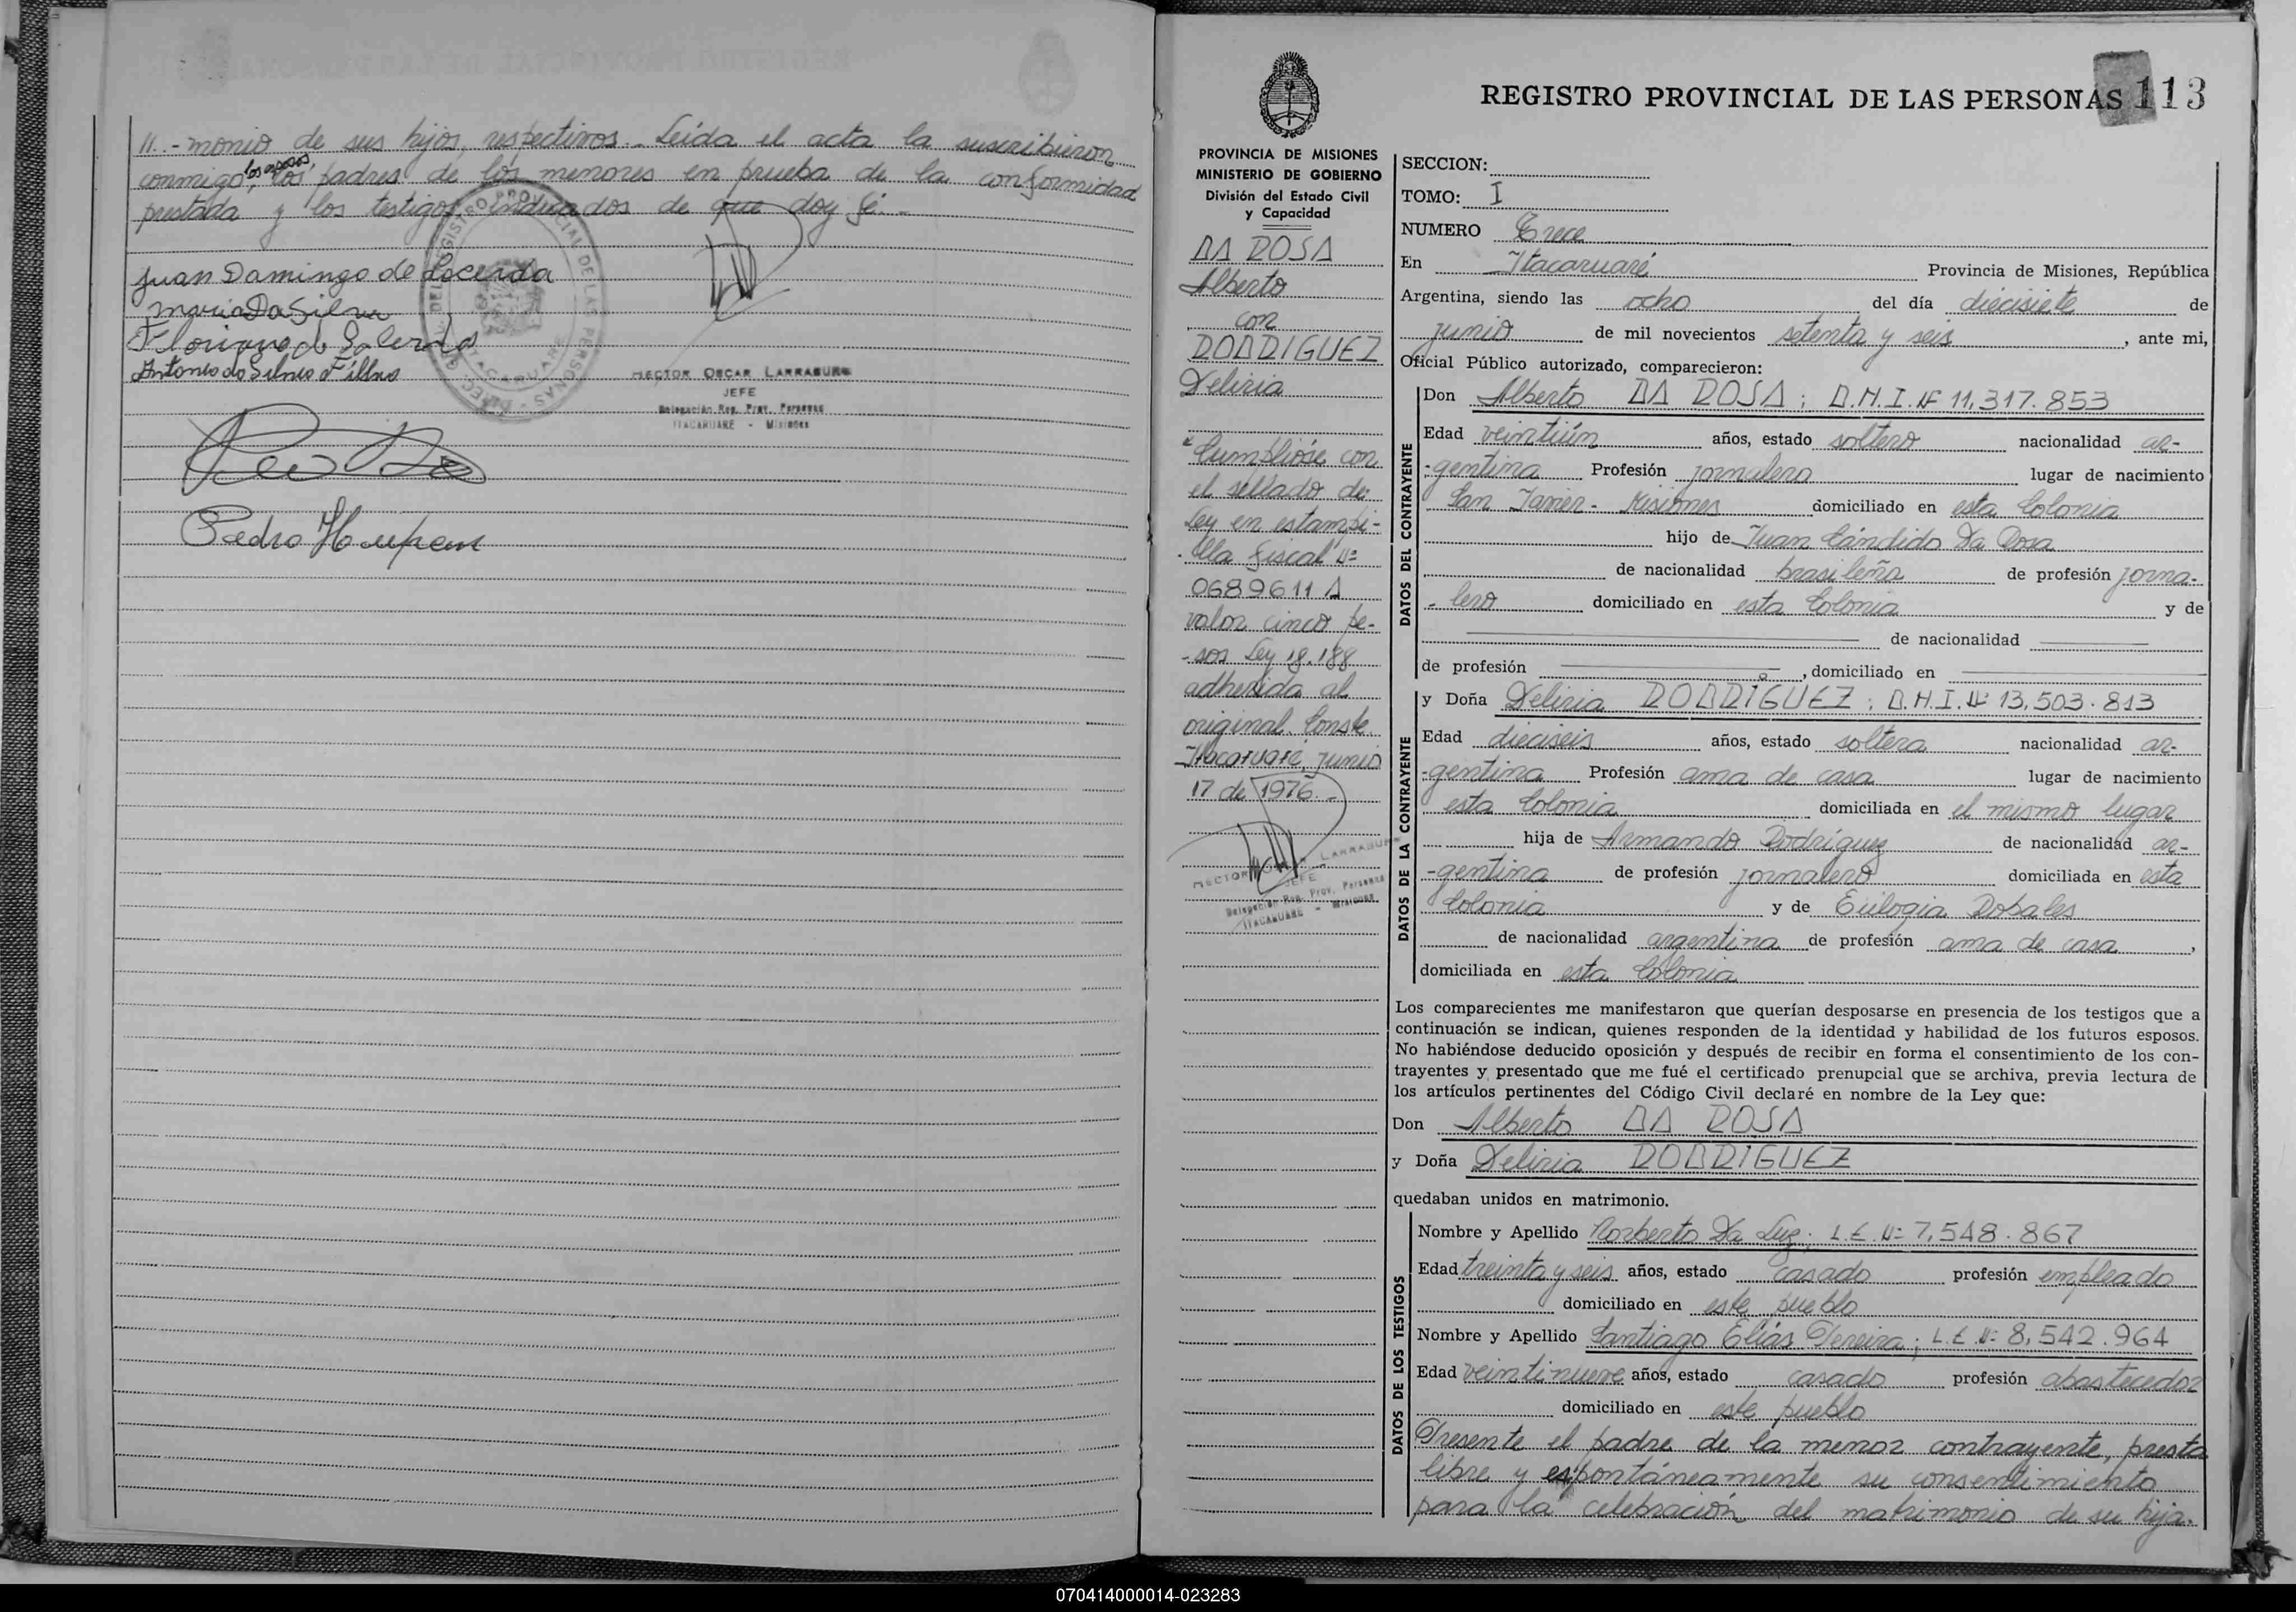 11.-monio de sus hijos, respectivos.- Leída el acta la suscribieron
conmigo, los esposos, los padres de los menores en prueba de la conformidad
prestada y los testigos indicados de que doy fé.-
Juan Damingo de Locerda
maria Da Silva
Antonio da Silva
HECTOR OSCAR LARRABURE
JEFE
Delegación Reg. Prov. Personas
ITACARUARE - Misiones
Pedro
REGISTRO PROVINCIAL DE LAS PERSONAS 113
PROVINCIA DE MISIONES
MINISTERIO DE GOBIERNO
División del Estado Civil
y Capacidad
DA ROSA
Alberto
con
RODRIGUEZ
Deliria
"Cumplióse con
el sellado de
Ley en estampi-
lla fiscal Nº
0689611 A
valor cinco pe-
-sos Ley 18.188
adherida al
original. Conste.
Itacaruaré, junio
17 de 1976.-
HECTOR LARRABURE
JEFE
Delegación Reg. Prov. Personas
ITACARUARE - Misiones
SECCION:
TOMO: I
NUMERO Trece
En Itacaruaré Provincia de Misiones, República
Argentina, siendo las ocho del día diecisiete de
junio de mil novecientos setenta y seis, ante mi,
Oficial Público autorizado, comparecieron:
DATOS DEL CONTRAYENTE
Don Alberto DA ROSA; D.N.I. Nº 11,317.853
Edad veintiún años, estado soltero nacionalidad ar-
-gentina Profesión jornalero lugar de nacimiento
San Javier - Misiones domiciliado en esta Colonia
hijo de Juan Cándido Da Rosa
de nacionalidad brasileña de profesión jorna-
-lero domiciliado en esta Colonia y de
de nacionalidad
de profesión , domiciliado en
DATOS DE LA CONTRAYENTE
y Doña Deliria RODRIGUEZ; D.N.I. Nº 13,503.813
Edad dieciseis años, estado soltera nacionalidad ar-
-gentina Profesión ama de casa lugar de nacimiento
esta Colonia domiciliada en el mismo lugar
hija de Armando Rodríguez de nacionalidad ar-
-gentina de profesión jornalero domiciliada en esta
Colonia y de Eulogia Robales
de nacionalidad argentina de profesión ama de casa,
domiciliada en esta Colonia
Los comparecientes me manifestaron que querían desposarse en presencia de los testigos que a
continuación se indican, quienes responden de la identidad y habilidad de los futuros esposos.
No habiéndose deducido oposición y después de recibir en forma el consentimiento de los con-
trayentes y presentado que me fué el certificado prenupcial que se archiva, previa lectura de
los artículos pertinentes del Código Civil declaré en nombre de la Ley que:
Don Alberto DA ROSA
y Doña Deliria RODRIGUEZ
quedaban unidos en matrimonio.
DATOS DE LOS TESTIGOS
Nombre y Apellido Norberto Da Luz; L.E. Nº 7,548.867
Edad treinta y seis años, estado casado profesión empleado
domiciliado en este pueblo
Nombre y Apellido Santiago Elías Pereira; L.E. Nº 8,542.964
Edad veintinueve años, estado casado profesión abastecedor
domiciliado en este pueblo
Presente el padre de la menor contrayente, presta
libre y espontáneamente su consentimiento
para la celebración del matrimonio de su hija.
070414000014-023283